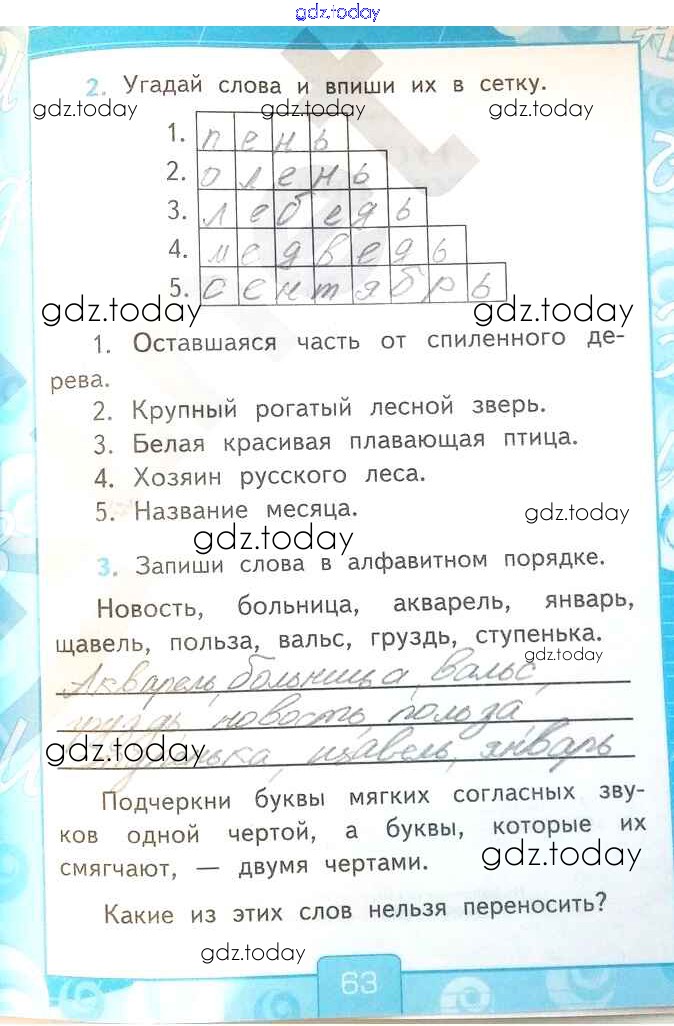 gdz.today
2. Угадай слова и впиши их в сетку.
gdz.today gdz.today gdz.today
1. пень
2. олень
3. лебедь
4. медведь
5. сентябрь
gdz.today gdz.today
1. Оставшаяся часть от спиленного де-
рева.
2. Крупный рогатый лесной зверь.
3. Белая красивая плавающая птица.
4. Хозяин русского леса.
5. Название месяца.
gdz.today
gdz.today
3. Запиши слова в алфавитном порядке.
Новость, больница, акварель, январь,
щавель, польза, вальс, груздь, ступенька.
gdz.today
Акварель, больница, вальс,
груздь, новость, польза
gdz.today
щавель, январь
Подчеркни буквы мягких согласных зву-
ков одной чертой, а буквы, которые их
gdz.today
смягчают, — двумя чертами.
Какие из этих слов нельзя переносить?
gdz.today
63